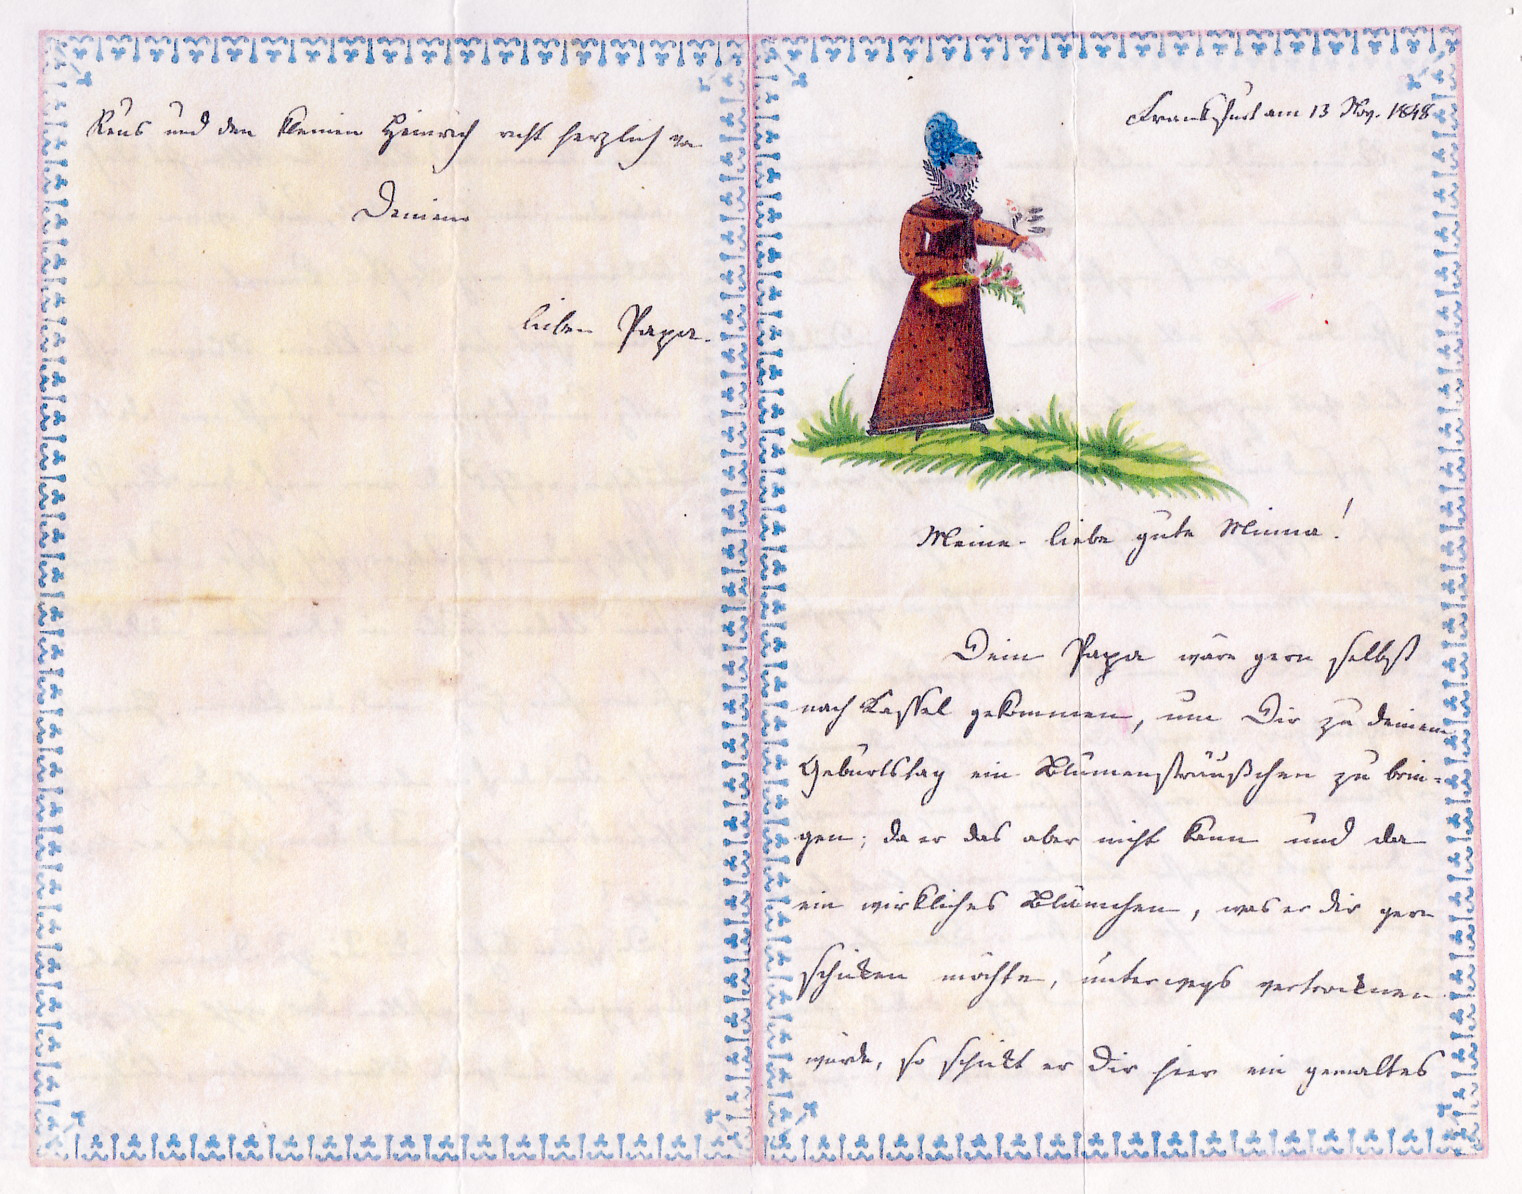 und den kleinen Heinrich recht herzlich von
Deinem
lieben Papa.
Frankfurt am 13 Nov. 1848
Meine liebe gute Minna!
Dein Papa wäre gern selbst
nach Kassel gekommen, um Dir zu deinem
Geburtstag ein Blumensträußchen zu brin=
gen; da er das aber nicht kann und da
ein wirkliches Blümchen, was er dir gern
schicken möchte, unterwegs vertrocknen
würde, so schickt er Dir hier ein gemaltes